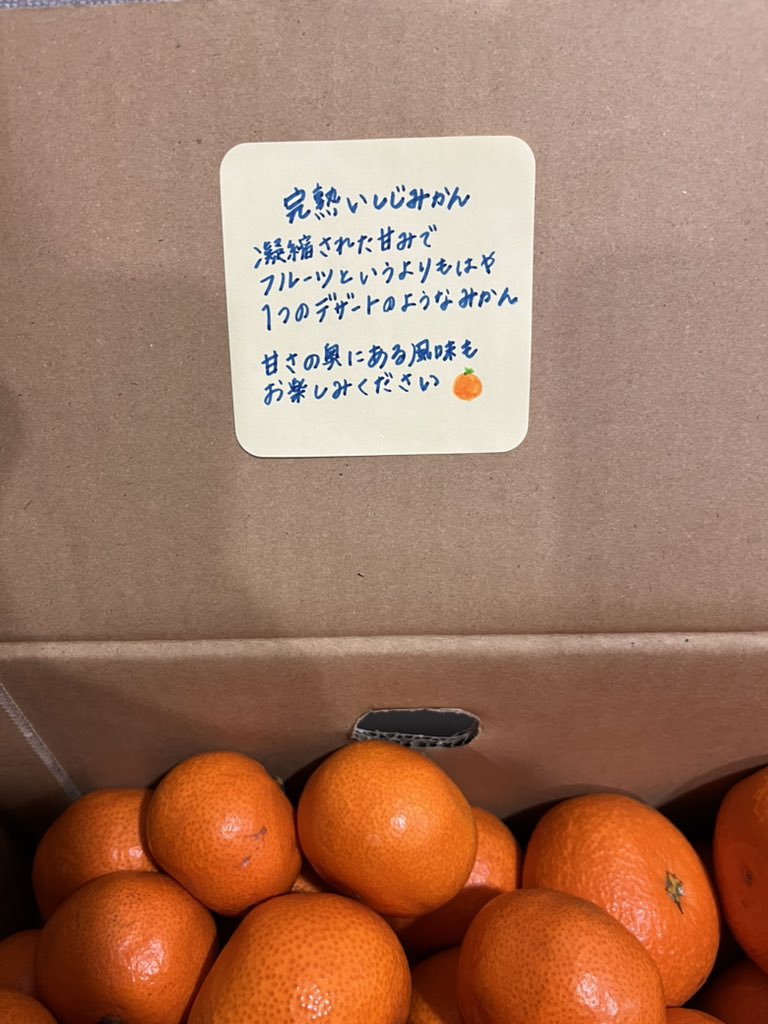 完熟いしじみかん
凝縮された甘みで
フルーツというよりもはや
1つのデザートのようなみかん
甘さの奥にある風味も
お楽しみください